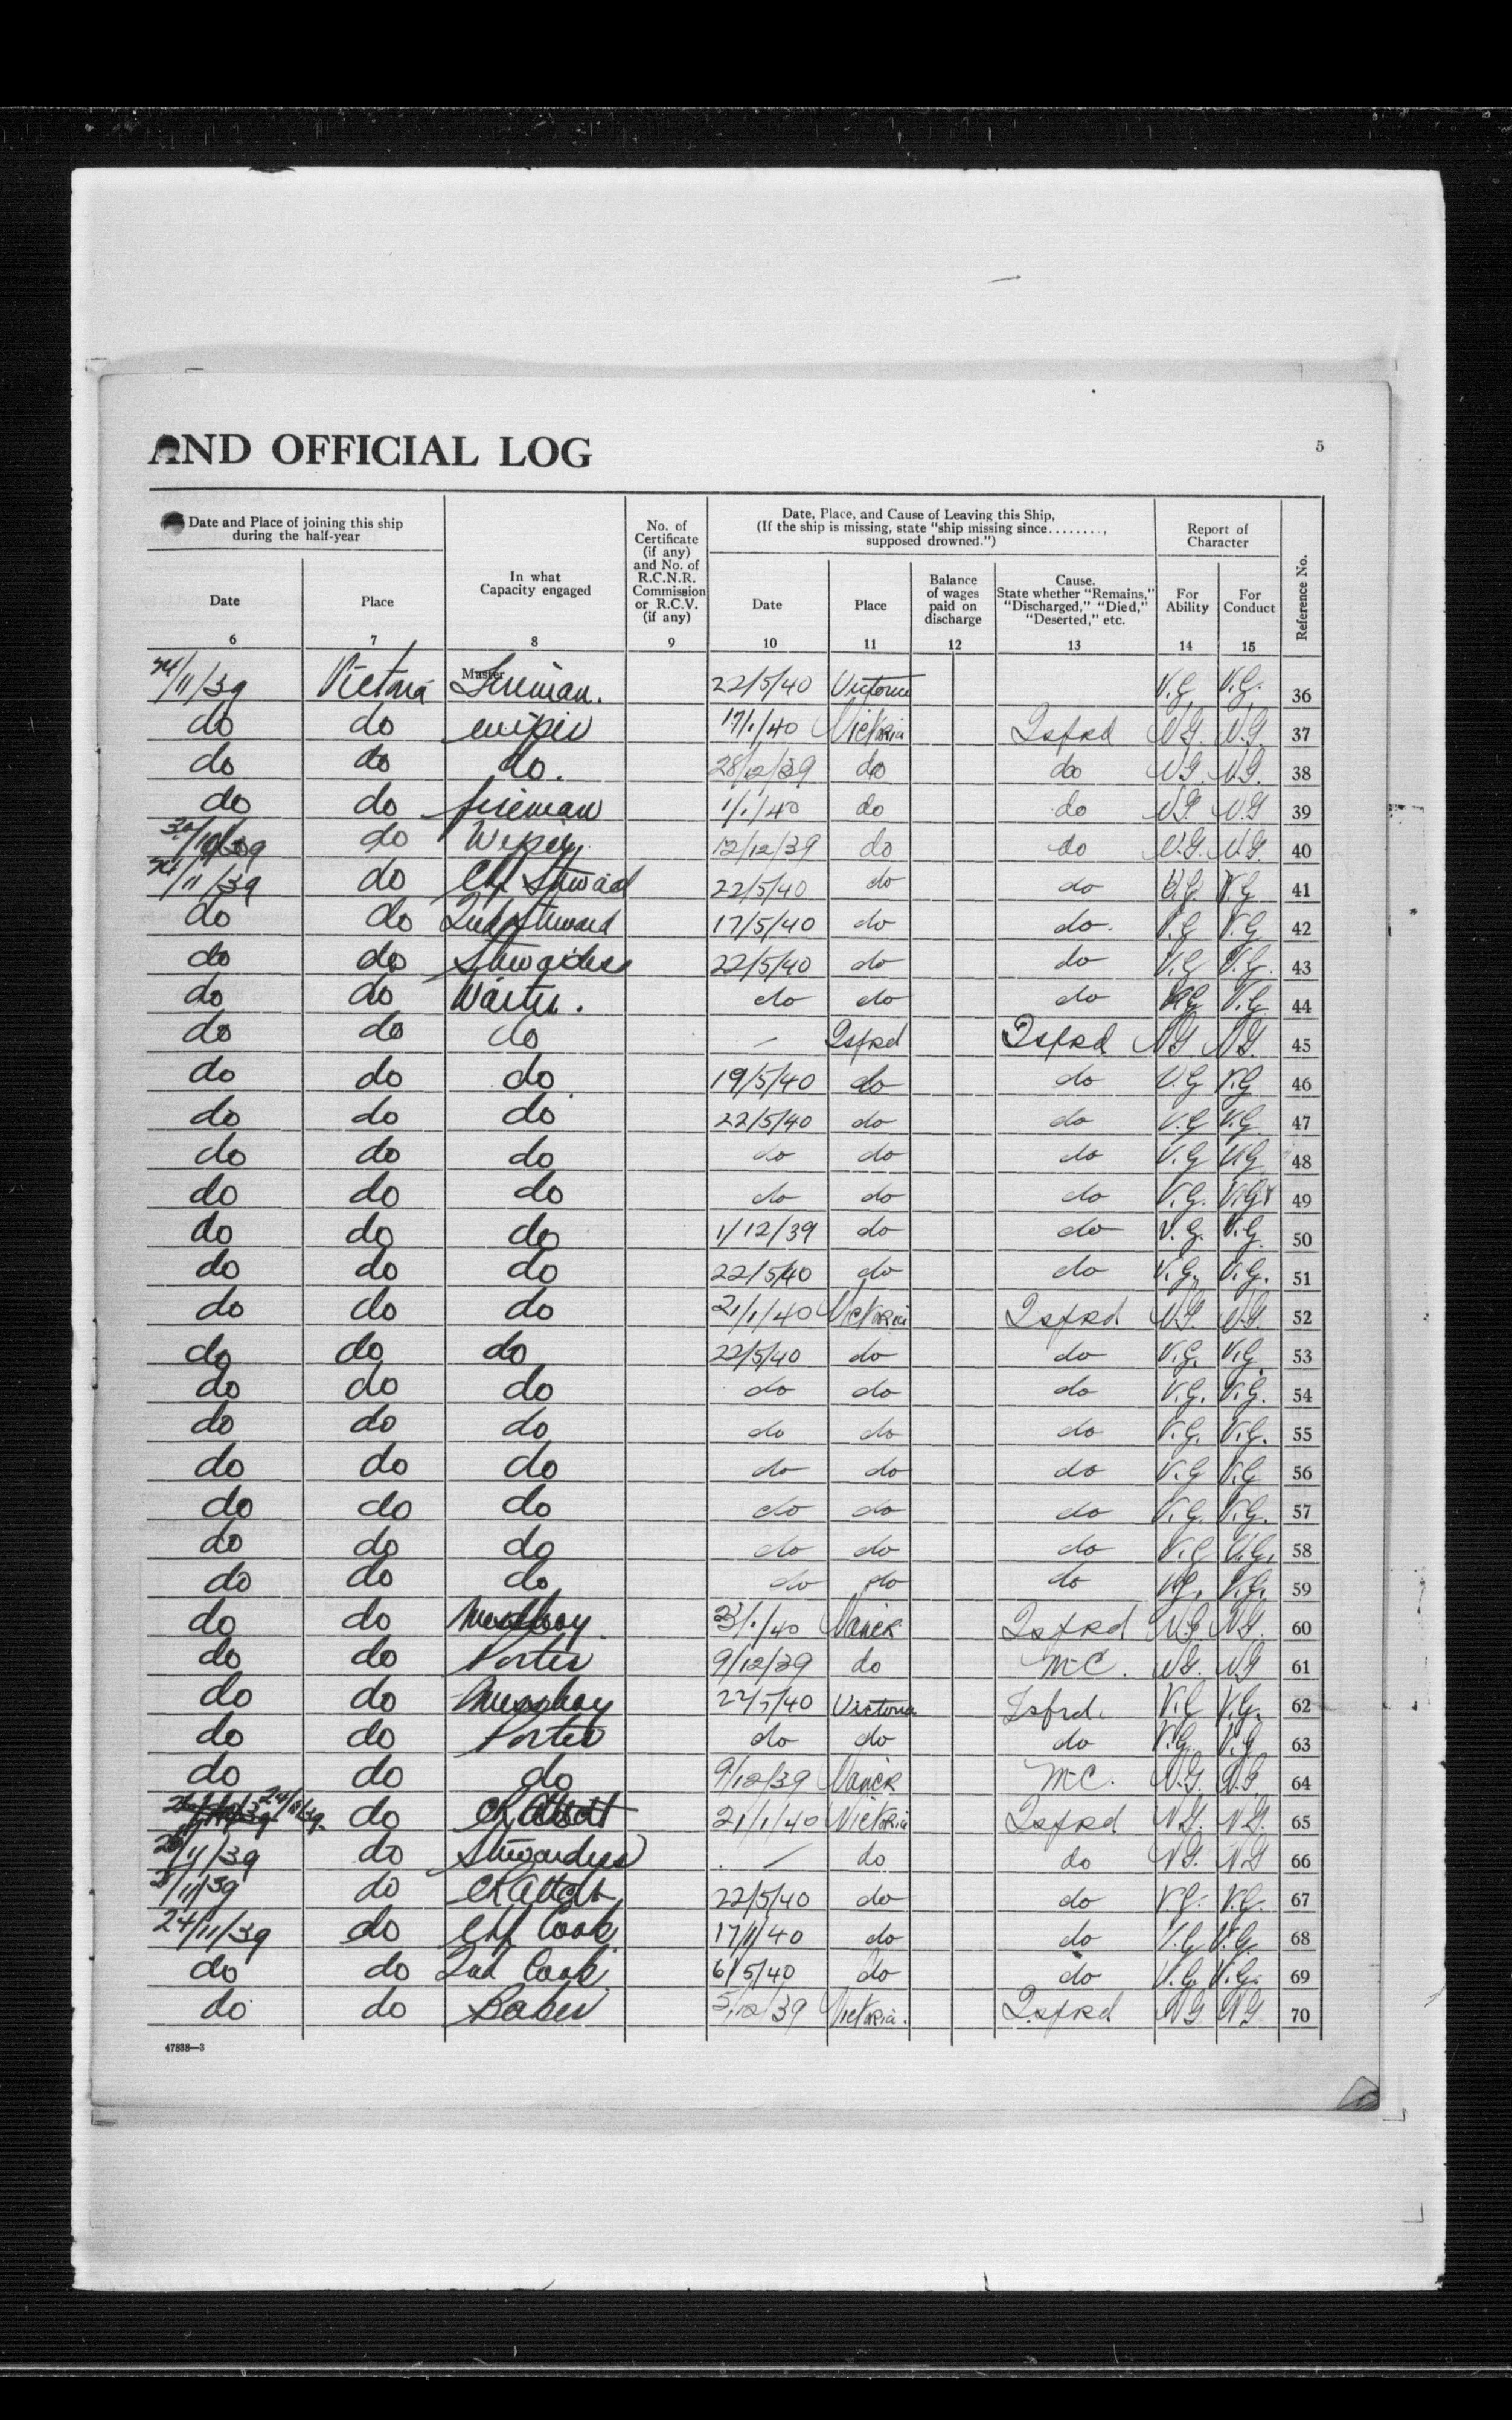 AND OFFICIAL LOG
5
Date and Place of joining this ship during the half-year
In what Capacity engaged
No. of Certificate (if any) and No. of R.C.N.R. Commission or R.C.V. (if any)
Date, Place, and Cause of Leaving this Ship, (If the ship is missing, state "ship missing since........, supposed drowned.")
Report of Character
Reference No.
Date Place Date Place Balance of wages paid on discharge Cause. State whether "Remains," "Discharged," "Died," "Deserted," etc. For Ability For Conduct
6 7 8 9 10 11 12 13 14 15
24/11/39 Victoria Master Fireman. 22/5/40 Victoria V.G. V.G. 36
do do wiper 17/1/40 Victoria Tsfrd V.G. V.G. 37
do do do. 28/12/39 do do V.G. V.G. 38
do do fireman 1/1/40 do do V.G. V.G. 39
do Wiper 12/12/39 do do V.G. V.G. 40
24/11/39 do Chf Steward 22/5/40 do do V.G. V.G. 41
do do 2nd Steward 17/5/40 do do. V.G. V.G. 42
do do Stewardess 22/5/40 do do V.G. V.G. 43
do do Waiter. do do do V.G. V.G. 44
do do do — Tsfrd Tsfrd V.G. V.G. 45
do do do 19/5/40 do do V.G. V.G. 46
do do do 22/5/40 do do V.G. V.G. 47
do do do do do do V.G. V.G. 48
do do do do do do V.G. V.G. 49
do do do 1/12/39 do do V.G. V.G. 50
do do do 22/5/40 do do V.G. V.G. 51
do do do 21/1/40 Victoria Tsfrd V.G. V.G. 52
do do do 22/5/40 do do V.G. V.G. 53
do do do do do do V.G. V.G. 54
do do do do do do V.G. V.G. 55
do do do do do do V.G. V.G. 56
do do do do do do V.G. V.G. 57
do do do do do do V.G. V.G. 58
do do do do do do V.G. V.G. 59
do do Messboy Vancr Tsfrd V.G. V.G. 60
do do Porter 9/12/39 do M-C. V.G. V.G. 61
do do Messboy 22/5/40 Victoria Tsfrd. V.G. V.G. 62
do do Porter do do do V.G. V.G. 63
do do do 9/12/39 Vancr M-C. V.G. V.G. 64
24/11/39 do 21/1/40 Victoria Tsfrd V.G. V.G. 65
do Stewardess — do do V.G. V.G. 66
do 22/5/40 do do V.G. V.G. 67
24/11/39 do Chf Cook 17/1/40 do do V.G. V.G. 68
do do 2nd Cook 6/5/40 do do V.G. V.G. 69
do do Baker 5/12/39 Victoria. Tsfrd V.G. V.G. 70
47838—3